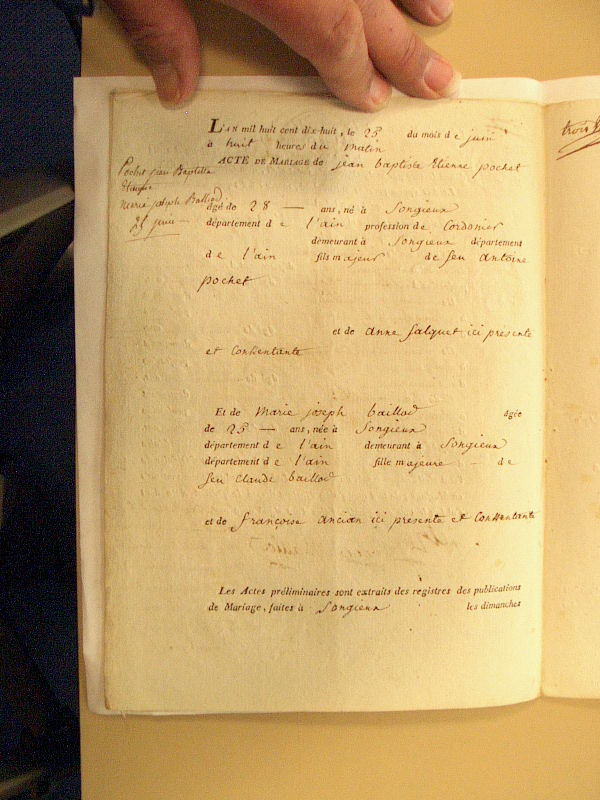 L'AN mil huit cent dix-huit, le 25 du mois de juin
à huit heures du matin
ACTE DE MARIAGE de jean baptiste Etienne pochet
Pochet jean Baptiste
Etienne
Marie joseph Baillod
25 juin
âgé de 28 — ans, né à Songieux
département de l'ain profession de Cordonier
demeurant à Songieux département
de l'ain fils majeur de feu Antoine
pochet
et de anne Salquet ici présente
et Consentante
Et de Marie joseph baillod âgée
de 25 — ans, née à Songieux
département de l'ain demeurant à Songieux
département de l'ain fille majeure de
feu Claude baillod
et de françoise ancian ici présente et Consentante
Les Actes préliminaires sont extraits des registres des publications
de Mariage, faites à Songieux les dimanches
trois